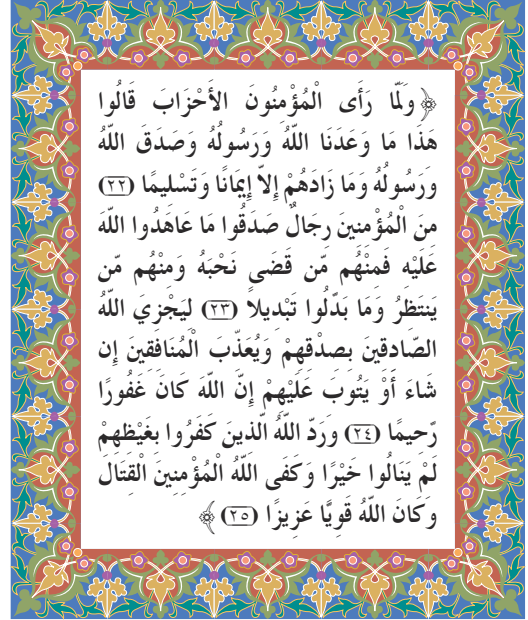 ﴿وَلَمَّا رَأَى الْمُؤْمِنُونَ الأَحْزَابَ قَالُوا
هَذَا مَا وَعَدَنَا اللَّهُ وَرَسُولُهُ وَصَدَقَ اللَّهُ
وَرَسُولُهُ وَمَا زَادَهُمْ إِلاَّ إِيمَانًا وَتَسْلِيمًا (٢٢)
مِنَ الْمُؤْمِنِينَ رِجَالٌ صَدَقُوا مَا عَاهَدُوا اللَّهَ
عَلَيْهِ فَمِنْهُم مَّن قَضَى نَحْبَهُ وَمِنْهُم مَّن
يَنتَظِرُ وَمَا بَدَّلُوا تَبْدِيلاً (٢٣) لِيَجْزِيَ اللَّهُ
الصَّادِقِينَ بِصِدْقِهِمْ وَيُعَذِّبَ الْمُنَافِقِينَ إِن
شَاءَ أَوْ يَتُوبَ عَلَيْهِمْ إِنَّ اللَّهَ كَانَ غَفُورًا
رَّحِيمًا (٢٤) وَرَدَّ اللَّهُ الَّذِينَ كَفَرُوا بِغَيْظِهِمْ
لَمْ يَنَالُوا خَيْرًا وَكَفَى اللَّهُ الْمُؤْمِنِينَ الْقِتَالَ
وَكَانَ اللَّهُ قَوِيًّا عَزِيزًا (٢٥)﴾